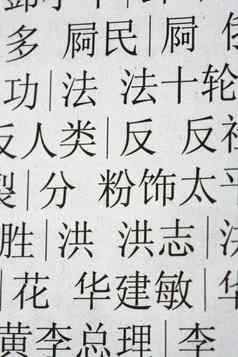 多 屙民|屙
功|法 法十轮
反人类|反 反社
裂|分 粉饰太平
胜|洪 洪志|
|花 华建敏|华
黄李总理|李